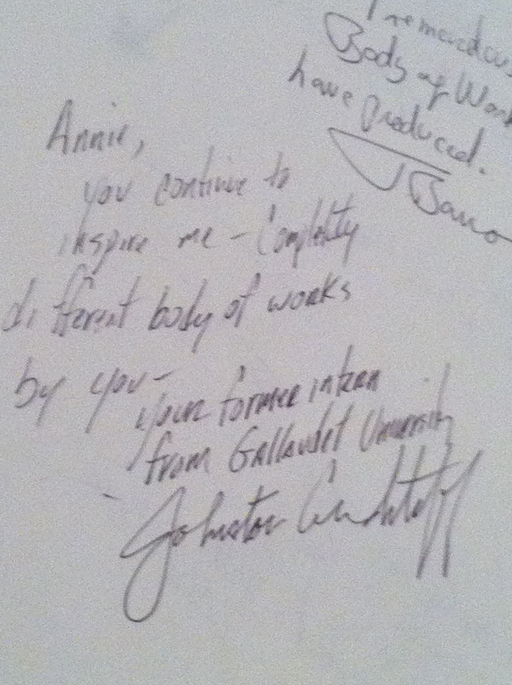 Tremendous
Body of Work
have Produced.
Annie,
you continue to
inspire me - Completly
different body of works
by you -
your former intern
from Gallaudet University
Johnston